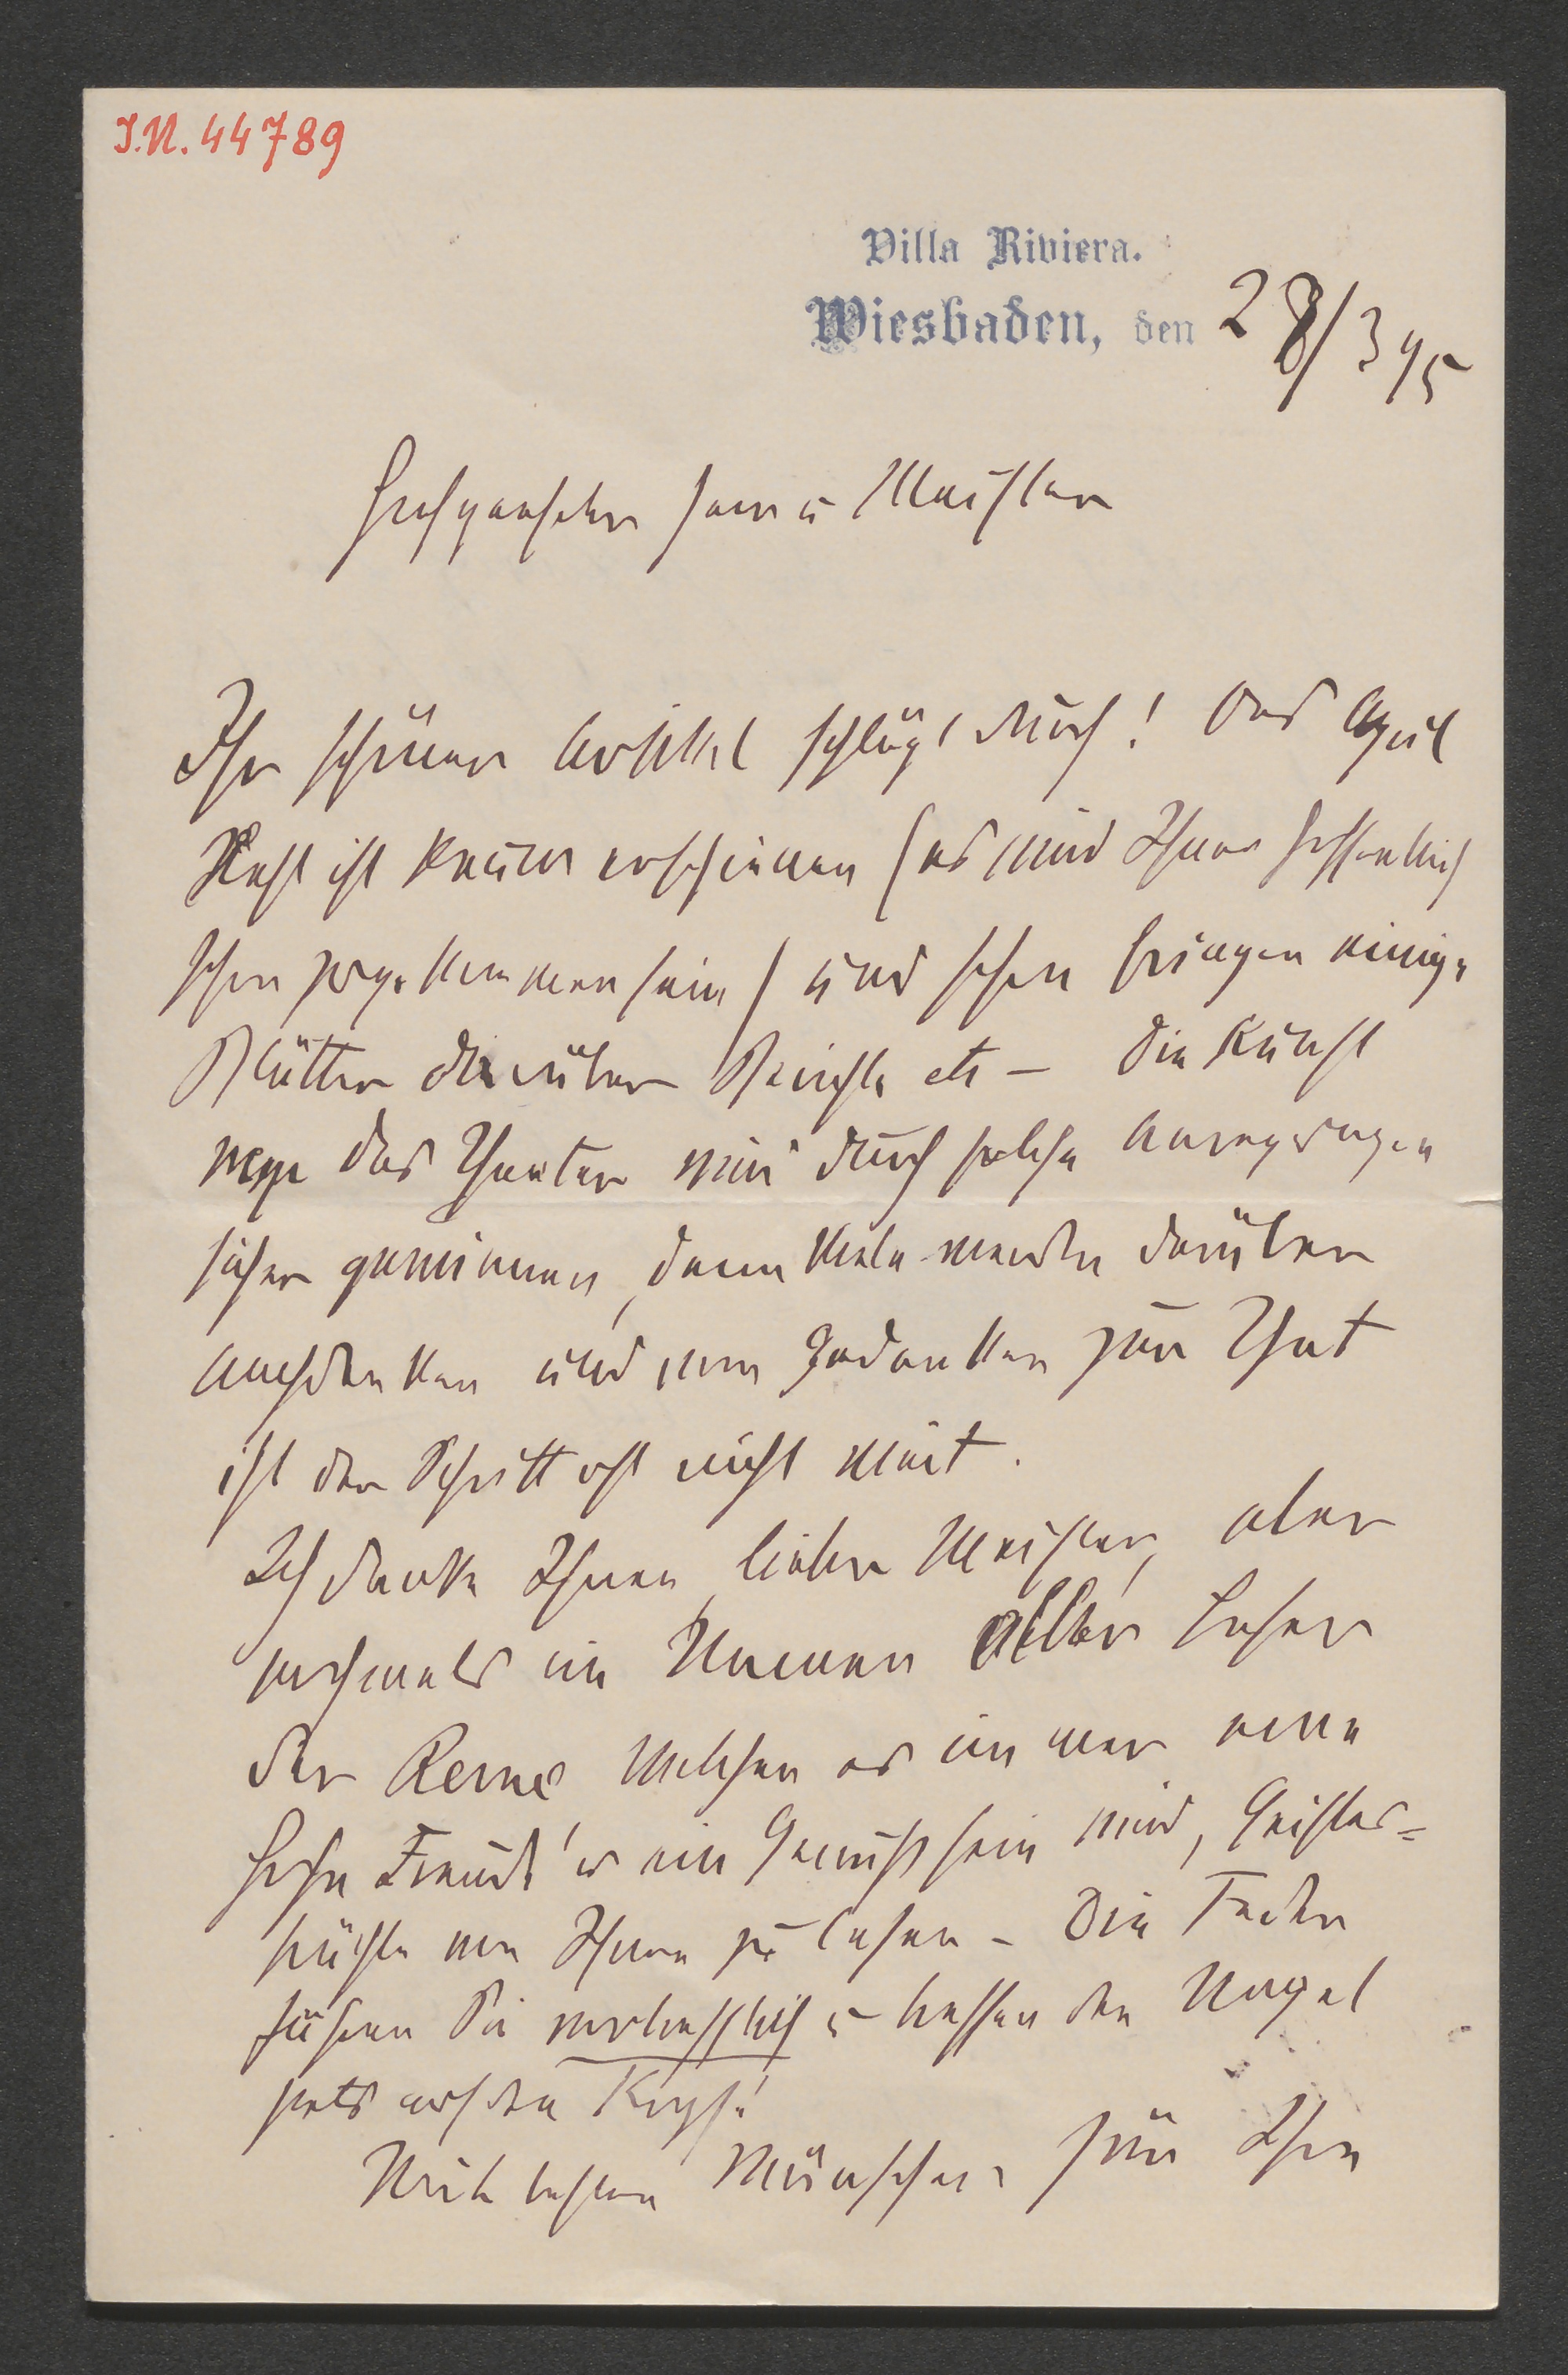 I.N. 44789
Villa Riviera.
Wiesbaden, den 28/3 95
Hochgeehrter Herr u Meister
Ihr schöner Artikel schlägt durch! Das April
Heft ist kaum erschienen (es wird Ihnen hoffentlich
schon zugekommen sein) und schon bringen einige
Blätter darüber Berichte etc – Die Kunst
das Theater wird durch solche Anregungen
sicher gewinnen, denn Viele werden darüber
nachdenken und vom Gedanken zur That
ist der Schritt oft nicht weit.
Ich danke Ihnen, lieber Meister, aber
nochmals im Namen aller Leser
der Revue welchen es immer eine
hohe Freude u ein Genuß sein wird, Geistes=
früchte von Ihnen zu lesen – Die Feder
führen Sie vortrefflich u treffen den Nagel
stets auf den Kopf!
Mit besten Wünschen für Ihre